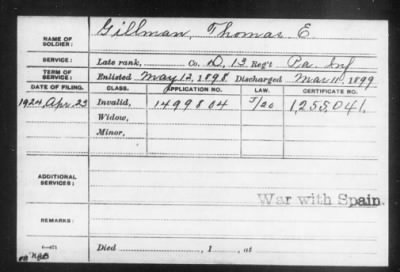 NAME OF SOLDIER: Gillman, Thomas E.
SERVICE: Late rank, Co. D, 13 Reg't Pa. Inf
TERM OF SERVICE: Enlisted May 12, 1898 Discharged Mar 11, 1899
DATE OF FILING. CLASS. APPLICATION NO. LAW. CERTIFICATE NO.
1924, Apr. 23 Invalid, 1499804 1,255,041.
Widow,
Minor,
ADDITIONAL SERVICES:
War with Spain.
REMARKS:
Died , 1 , at